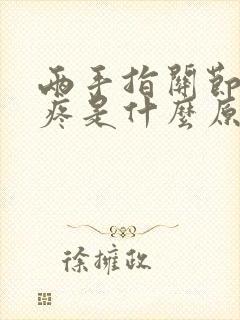 兩手指關節
疼是什麼原
徐擁政